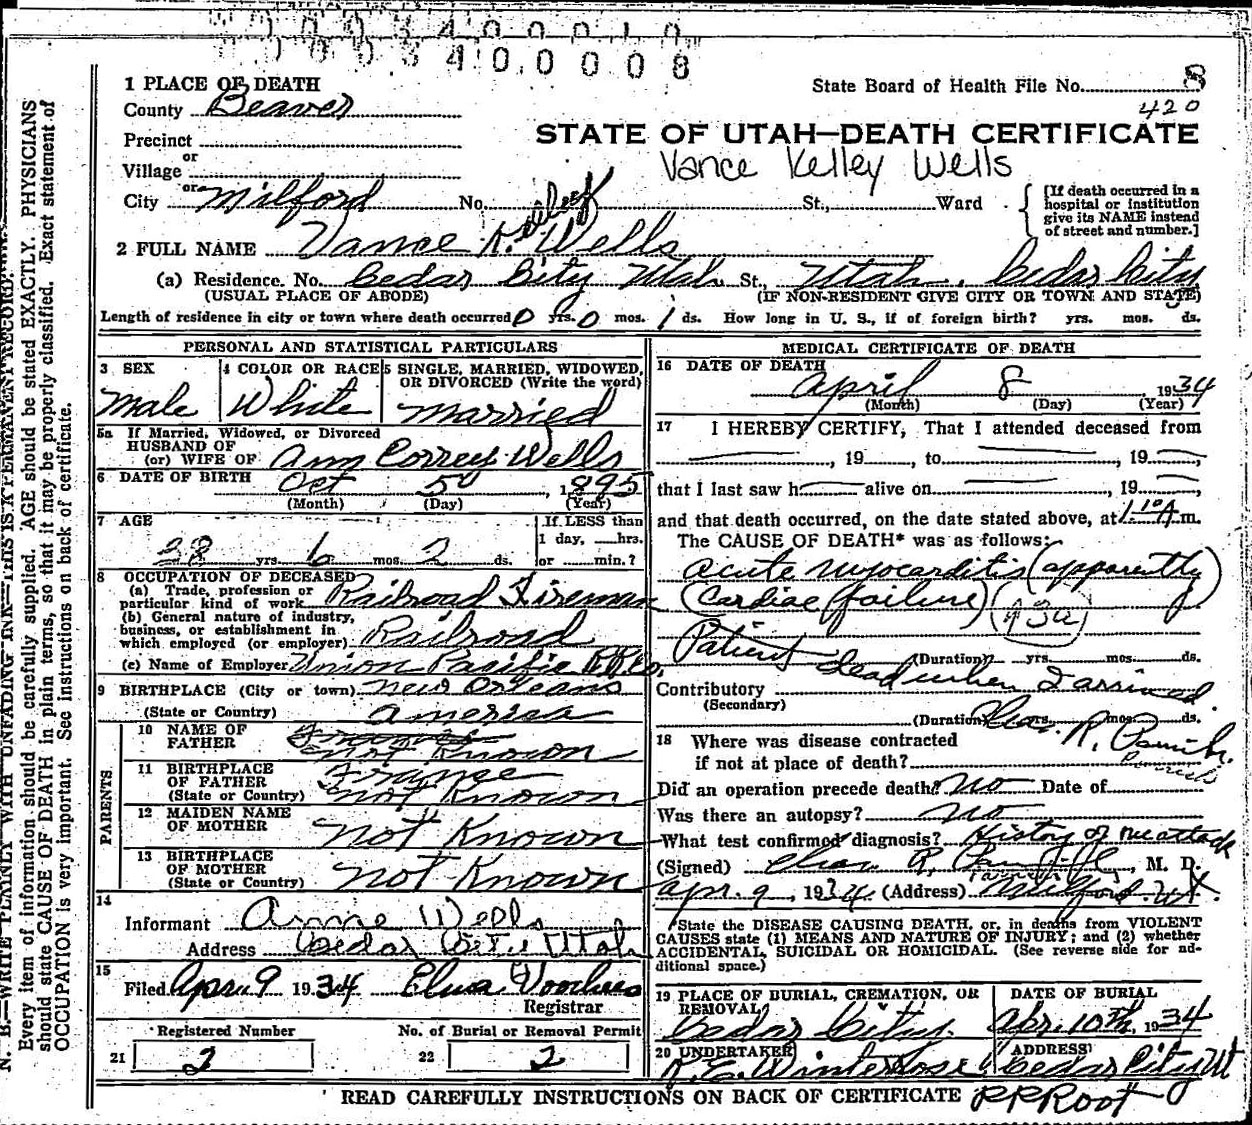 0 0 3 4 0 0 0 1 0
0 0 3 4 0 0 0 0 8
State Board of Health File No. 8
420
1 PLACE OF DEATH
County Beaver
STATE OF UTAH—DEATH CERTIFICATE
Precinct
Vance Kelley Wells
or
Village
or
City Milford No. St., Ward
[If death occurred in a hospital or institution give its NAME instead of street and number.]
2 FULL NAME Vance K. Wells
(a) Residence. No. Cedar City Utah St., Utah. Cedar City
(USUAL PLACE OF ABODE) (IF NON-RESIDENT GIVE CITY OR TOWN AND STATE)
Length of residence in city or town where death occurred 0 yrs. 0 mos. 1 ds. How long in U. S., if of foreign birth? yrs. mos. ds.
PERSONAL AND STATISTICAL PARTICULARS
3 SEX
Male
4 COLOR OR RACE
White
5 SINGLE, MARRIED, WIDOWED, OR DIVORCED (Write the word)
Married
5a If Married, Widowed, or Divorced
HUSBAND OF
(or) WIFE OF Ann Correy Wells
6 DATE OF BIRTH Oct 5 1895
(Month) (Day) (Year)
7 AGE
38 yrs. 6 mos. 2 ds.
If LESS than
1 day, hrs.
or min.?
8 OCCUPATION OF DECEASED
(a) Trade, profession or
particular kind of work Railroad Fireman
(b) General nature of industry,
business, or establishment in
which employed (or employer) Railroad
(c) Name of Employer Union Pacific R.R. Co.
9 BIRTHPLACE (City or town) New Orleans
(State or Country) America
PARENTS
10 NAME OF
FATHER Not Known
11 BIRTHPLACE
OF FATHER France
(State or Country) Not Known
12 MAIDEN NAME
OF MOTHER Not Known
13 BIRTHPLACE
OF MOTHER
(State or Country) Not Known
14
Informant Anne Wells
Address Cedar City Utah
15
Filed Apr. 9 1934 Elva Voorhees
Registrar
Registered Number
21 2
No. of Burial or Removal Permit
22 2
MEDICAL CERTIFICATE OF DEATH
16 DATE OF DEATH
April 8 1934
(Month) (Day) (Year)
17 I HEREBY CERTIFY, That I attended deceased from
, 19 , to , 19 ,
that I last saw h alive on , 19
and that death occurred, on the date stated above, at 1:10 A m.
The CAUSE OF DEATH* was as follows:
Acute myocarditis (apparently
(Cardiac failure)
Patient dead when I arrived.
(Duration) yrs. mos. ds.
Contributory
(Secondary)
(Duration) yrs. mos. ds.
Chas. R. Parrish
18 Where was disease contracted
if not at place of death?
Did an operation precede death? No Date of
Was there an autopsy? No
What test confirmed diagnosis? History of ht attack
(Signed) Chas. R. Parrish, M. D.
Apr. 9, 1934 (Address) Milford. Ut.
*State the DISEASE CAUSING DEATH, or, in deaths from VIOLENT
CAUSES state (1) MEANS AND NATURE OF INJURY; and (2) whether
ACCIDENTAL, SUICIDAL OR HOMICIDAL. (See reverse side for ad-
ditional space.)
19 PLACE OF BURIAL, CREMATION, OR
REMOVAL
Cedar City.
DATE OF BURIAL
Apr. 10th, 1934
20 UNDERTAKER
R. E. Winterrose
ADDRESS
Cedar City Ut
READ CAREFULLY INSTRUCTIONS ON BACK OF CERTIFICATE
RR Root
N. B.—WRITE PLAINLY WITH UNFADING INK—THIS IS A PERMANENT RECORD.
Every item of information should be carefully supplied. AGE should be stated EXACTLY. PHYSICIANS
should state CAUSE OF DEATH in plain terms, so that it may be properly classified. Exact statement of
OCCUPATION is very important. See instructions on back of certificate.